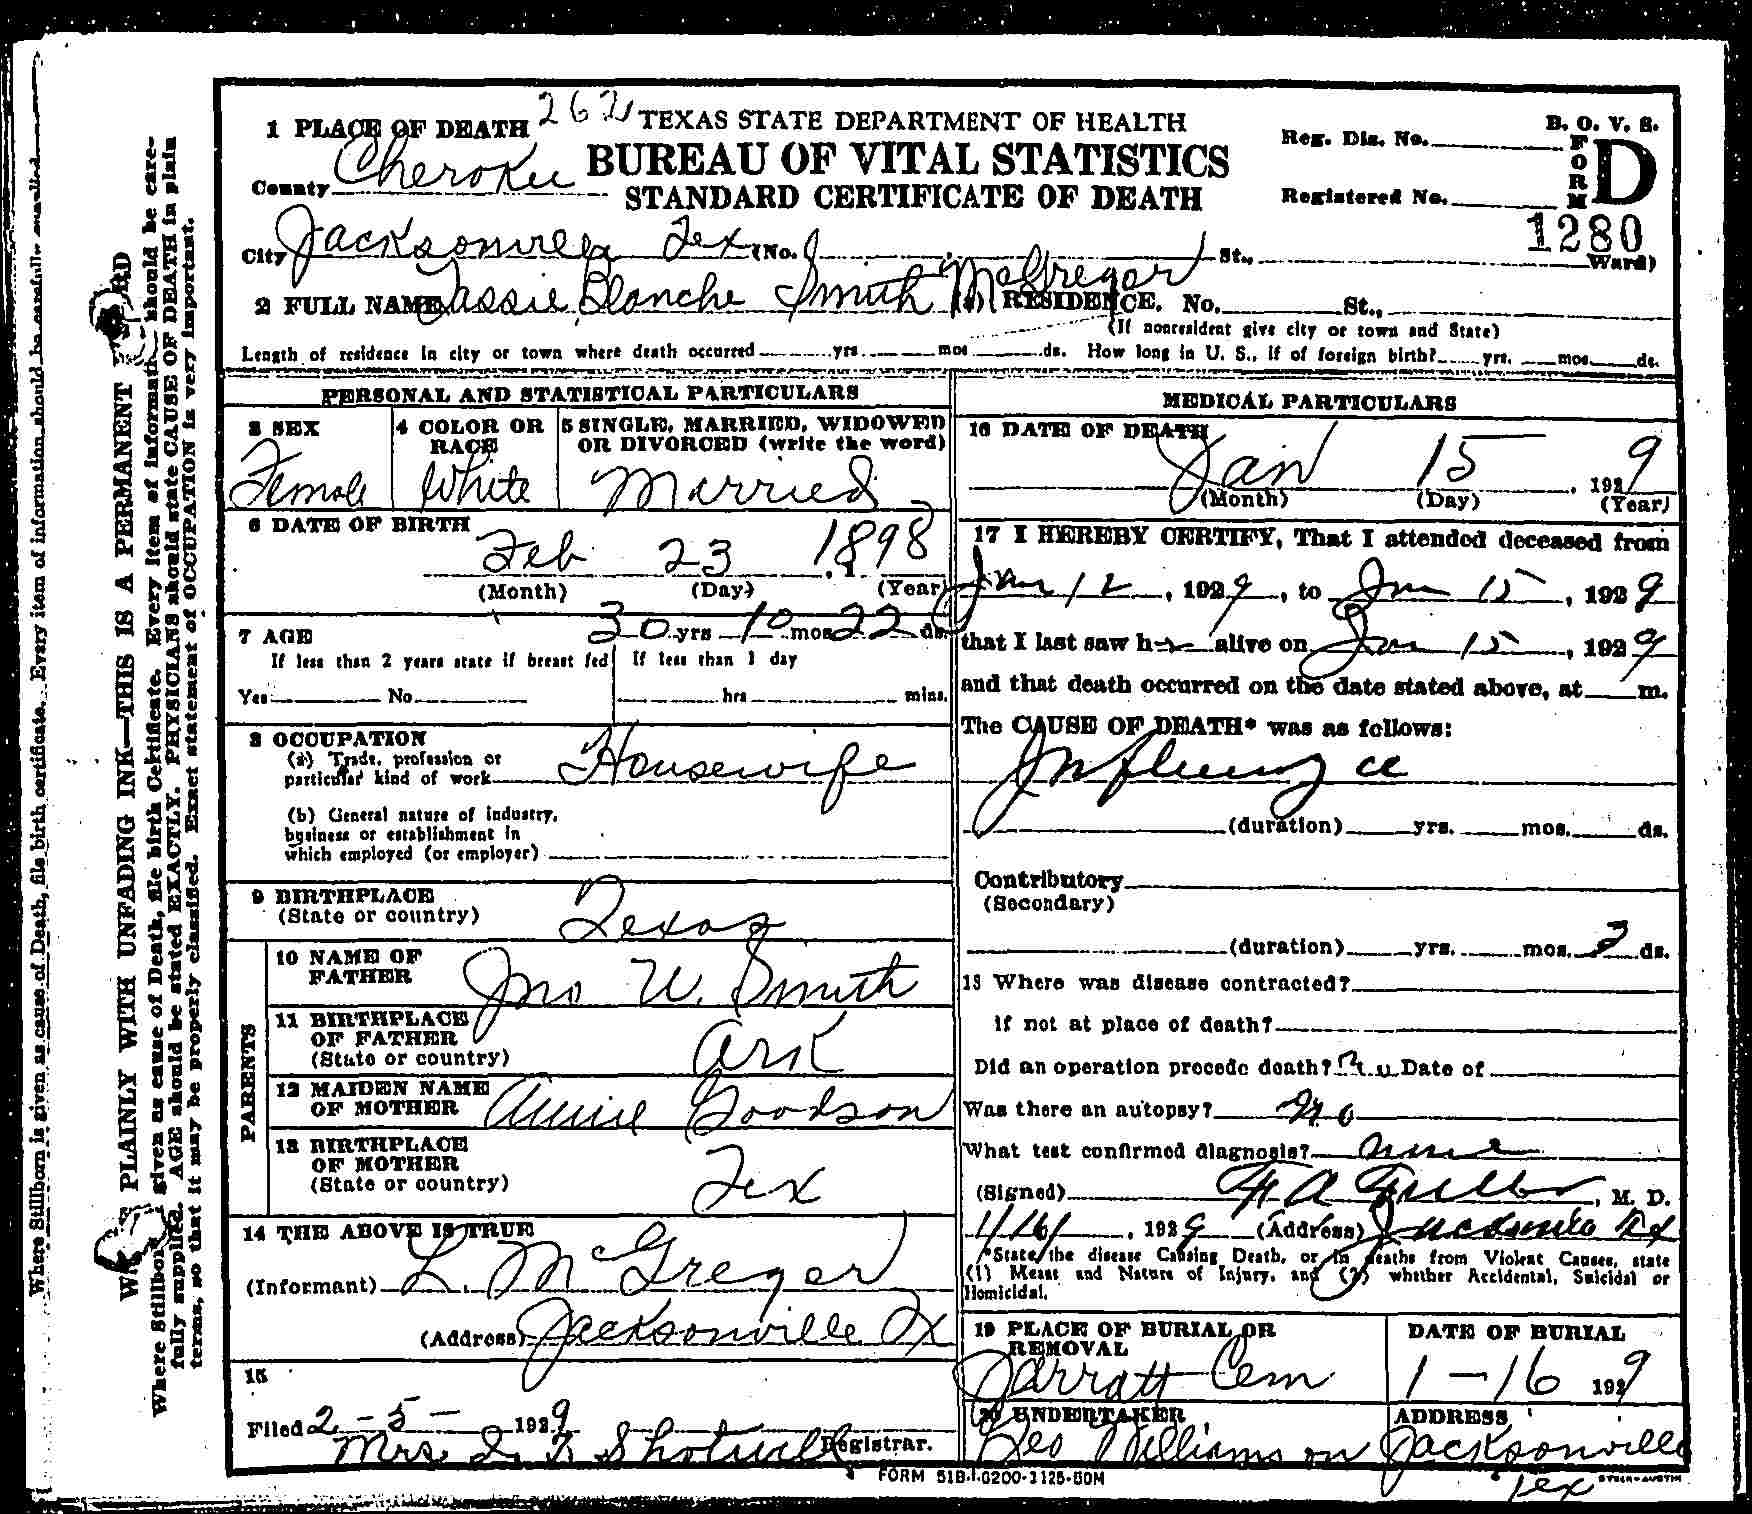 262
TEXAS STATE DEPARTMENT OF HEALTH
BUREAU OF VITAL STATISTICS
STANDARD CERTIFICATE OF DEATH
B. O. V. S.
FORM D
Reg. Dis. No.
Registered No.
1280
1 PLACE OF DEATH
County Cherokee
City Jacksonville Tex (No. St., Ward)
2 FULL NAME Tassie Blanche Smith McGregor (a) RESIDENCE. No. St.,
(If nonresident give city or town and State)
Length of residence in city or town where death occurred yrs. mos ds. How long in U. S., if of foreign birth? yrs. mos. ds.
PERSONAL AND STATISTICAL PARTICULARS
3 SEX
Female
4 COLOR OR RACE
White
5 SINGLE, MARRIED, WIDOWED
OR DIVORCED (write the word)
Married
6 DATE OF BIRTH
Feb 23 1898
(Month) (Day) (Year)
7 AGE 30 yrs 10 mos 22 ds.
If less than 2 years state if breast fed
Yes No
If less than 1 day
hrs mins.
8 OCCUPATION
(a) Trade, profession or
particular kind of work Housewife
(b) General nature of industry,
business or establishment in
which employed (or employer)
9 BIRTHPLACE
(State or country) Texas
PARENTS
10 NAME OF
FATHER Jno W. Smith
11 BIRTHPLACE
OF FATHER
(State or country) Ark
12 MAIDEN NAME
OF MOTHER Annie Goodson
13 BIRTHPLACE
OF MOTHER
(State or country) Tex
14 THE ABOVE IS TRUE
(Informant) L. McGregor
(Address) Jacksonville Tx
15
Filed 2-5- 1929
Mrs. Shotwell Registrar.
MEDICAL PARTICULARS
16 DATE OF DEATH
Jan 15 1929
(Month) (Day) (Year)
17 I HEREBY CERTIFY, That I attended deceased from
Jan 12, 1929, to Jan 15, 1929
that I last saw her alive on Jan 15, 1929
and that death occurred on the date stated above, at m.
The CAUSE OF DEATH* was as follows:
Influenza
(duration) yrs. mos. ds.
Contributory
(Secondary)
(duration) yrs. mos. 3 ds.
18 Where was disease contracted?
If not at place of death?
Did an operation precede death? no Date of
Was there an autopsy? No
What test confirmed diagnosis? none
(Signed) Fuller, M. D.
1/16/, 1929 (Address) Jacksonville Tx
*State the disease Causing Death, or in deaths from Violent Causes, state
(1) Means and Nature of Injury, and (2) whether Accidental, Suicidal or
Homicidal.
19 PLACE OF BURIAL OR
REMOVAL
Jarratt Cem
DATE OF BURIAL
1-16 1929
20 UNDERTAKER
Geo Williamson
ADDRESS
Jacksonville
Tex
FORM 51B-1-0200-1125-80M
WRITE PLAINLY WITH UNFADING INK—THIS IS A PERMANENT RECORD
Where Stillborn is given as cause of Death, file birth Certificate. Every item of information should be care-
fully supplied. AGE should be stated EXACTLY. PHYSICIANS should state CAUSE OF DEATH in plain
terms, so that it may be properly classified. Exact statement of OCCUPATION is very important.
Where Stillborn is given as cause of Death, file birth certificate. Every item of information should be carefully supplied